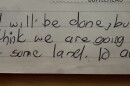 I will be done, but
think we are going
some land. 10 a